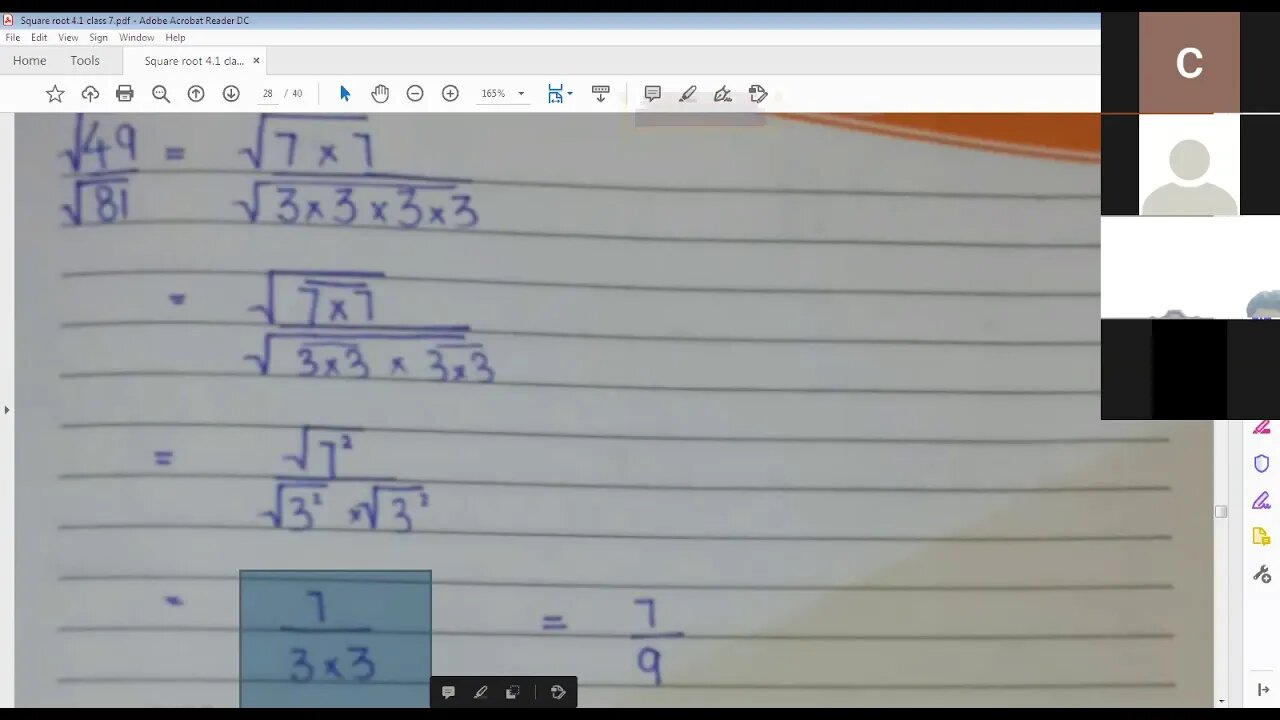 Square root 4.1 class 7.pdf - Adobe Acrobat Reader DC
File Edit View Sign Window Help
Home Tools Square root 4.1 cla... ×
28 / 40 165%
C
√49 / √81 = √7 × 7 / √3 × 3 × 3 × 3
= √7 × 7 / √3 × 3 × 3 × 3
= √7² / √3² × √3²
= 7 / 3 × 3 = 7 / 9